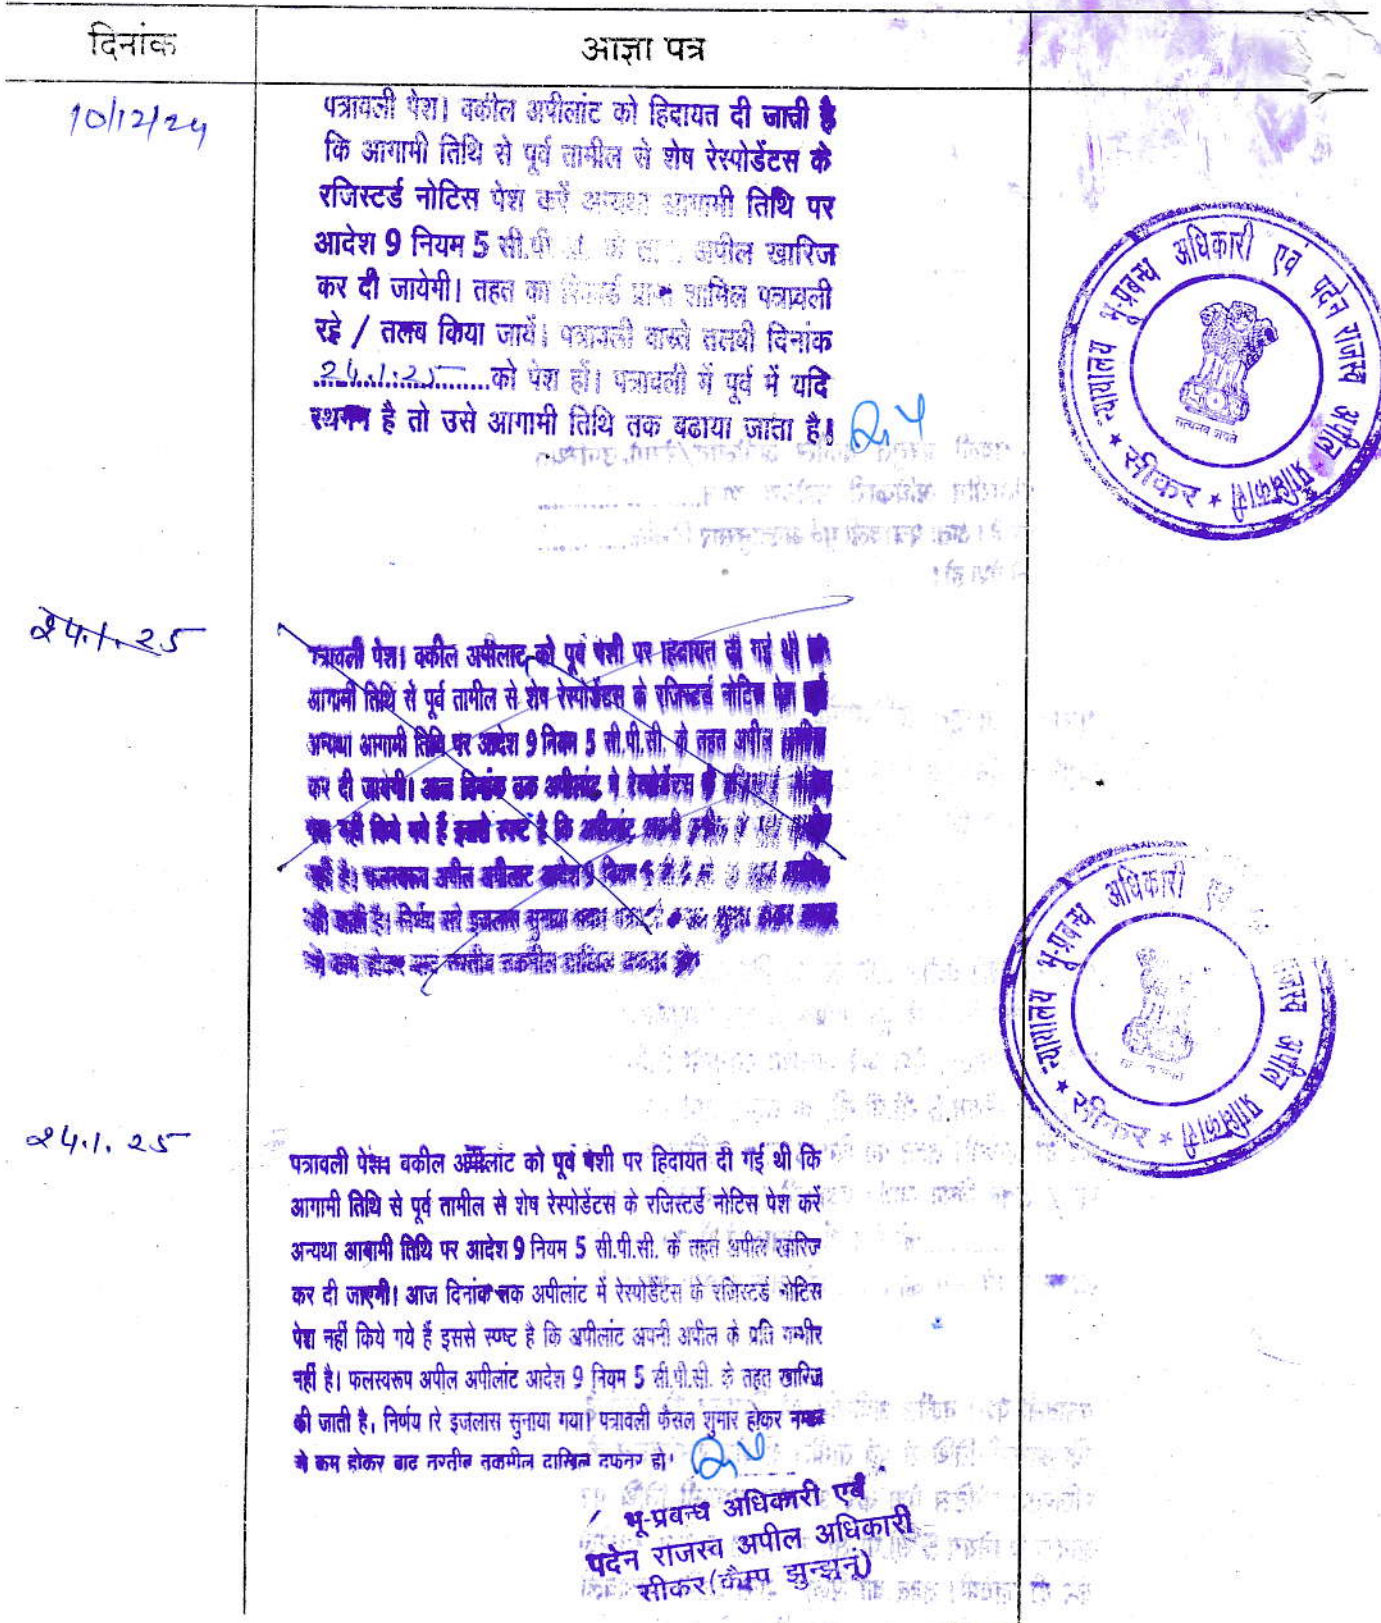 दिनांक
आज्ञा पत्र
10/12/24
पत्रावली पेश। वकील अपीलांट को हिदायत दी जाती है
कि आगामी तिथि से पूर्व तामील से शेष रेस्पोडेंटस के
रजिस्टर्ड नोटिस पेश करें अन्यथा आगामी तिथि पर
आदेश 9 नियम 5 सी.पी के अपील खारिज
कर दी जायेगी। तहत का रिकार्ड प्राप्त शामिल पत्रावली
रहे / तलब किया जायें। पत्रावली वास्ते तलबी दिनांक
24.1.25 को पेश हों। पत्रावली में पूर्व में यदि
स्थगन है तो उसे आगामी तिथि तक बढाया जाता है।
न्यायालय भू-प्रबन्ध अधिकारी एवं पदेन राजस्व अपील प्राधिकारी
* सीकर *
सत्यमेव जयते
24.1.25
पत्रावली पेश। वकील अपीलाट को पूर्व पेशी पर हिदायत दी गई थी
आगामी तिथि से पूर्व तामील से शेष रेस्पोडेंटस के रजिस्टर्ड नोटिस पेश
अन्यथा आगामी तिथि पर आदेश 9 नियम 5 सी.पी.सी. के तहत अपील
कर दी जायेगी। आज दिनांक तक अपीलांट ने रेस्पोडेंटस के
नहीं किये गये हैं इससे स्पष्ट है कि अपीलांट अपनी
नहीं है। फलस्वरूप अपील अपीलाट आदेश 9 नियम 5
की जाती है। निर्णय सरे इजलास सुनाया गया
से कम होकर बाद तरतीब तकमील दाखिल दफ्तर हो
न्यायालय भू-प्रबन्ध अधिकारी एवं राजस्व अपील प्राधिकारी
* सीकर *
24.1.25
पत्रावली पेश। वकील अपीलांट को पूर्व पेशी पर हिदायत दी गई थी कि
आगामी तिथि से पूर्व तामील से शेष रेस्पोडेंटस के रजिस्टर्ड नोटिस पेश करें
अन्यथा आगामी तिथि पर आदेश 9 नियम 5 सी.पी.सी. के तहत अपील खारिज
कर दी जाएगी। आज दिनांक तक अपीलांट में रेस्पोडेंटस के रजिस्टर्ड नोटिस
पेश नहीं किये गये हैं इससे स्पष्ट है कि अपीलांट अपनी अपील के प्रति गम्भीर
नहीं है। फलस्वरूप अपील अपीलांट आदेश 9 नियम 5 सी.पी.सी. के तहत खारिज
की जाती है, निर्णय सरे इजलास सुनाया गया। पत्रावली फैसल शुमार होकर नम्बर
से कम होकर बाद तरतीब तकमील दाखिल दफ्तर हो।
भू-प्रबन्ध अधिकारी एवं
पदेन राजस्व अपील अधिकारी
सीकर (कैम्प झुन्झुनू)